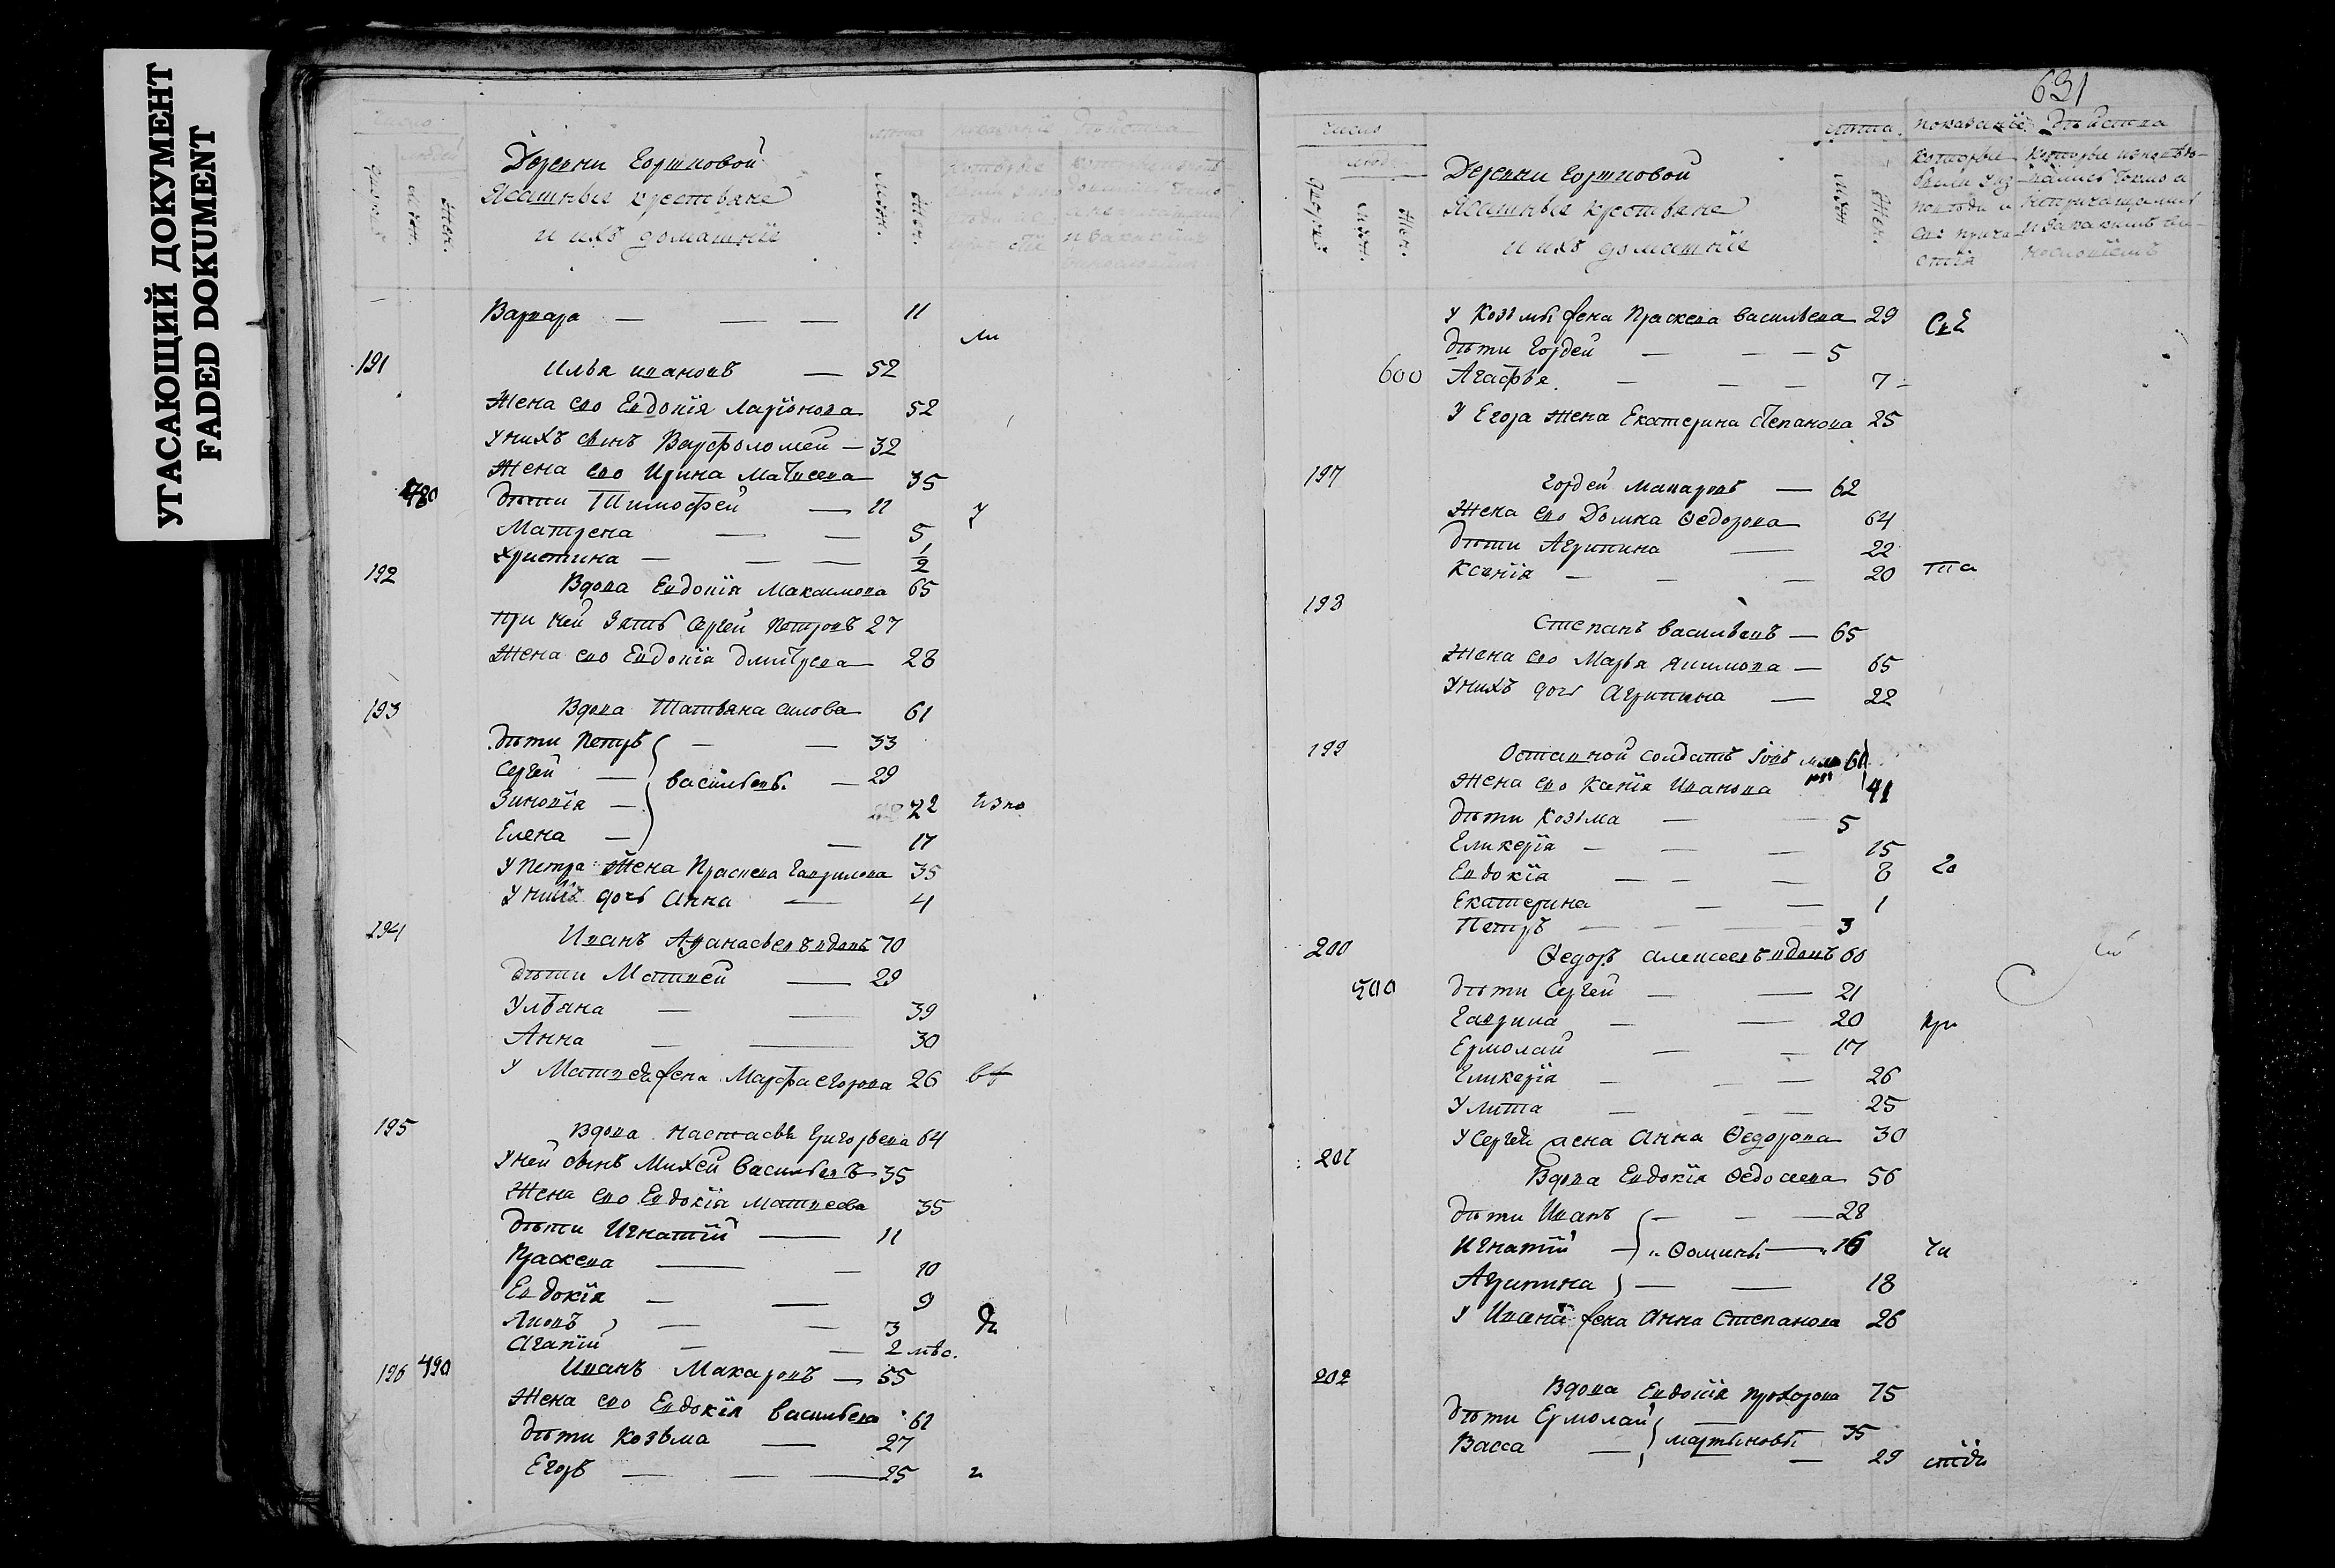 УГАСАЮЩИЙ ДОКУМЕНТ
FADED DOKUMENT
число
людей
муж.
жен.
лѣта
муж.
жен.
показанїе
Деревни
Ясашные крестьяне
и ихъ домашнїе
Варвара — — — 11
ли
191 Илья ивановъ — 52
Жена ево Евдокїя Ларїонова 52
У нихъ сынъ Варфоломей — 32
Жена ево Ирина Матвеева 35
480 дѣти Тимофей — 11
у
Матрена — — 5
Христина — — — 1/2
192 Вдова Евдокїя Максимова 65
При ней зять Сергей Петровъ 27
Жена ево Евдокїя Дмитрева 28
193 Вдова Татьяна Силова 61
дѣти Петръ — — 33
Сергей — васильевы — 29
Зиновїя — 22 изпо
Елена — — 17
У Петра Жена Праскева Гаврилова 35
У нихъ дочь Анна — 4
194 Иванъ Афанасьевъ вдовъ 70
дѣти Матвей — 29
Ульяна — — 39
Анна — — 30
У Матвея жена Марфа Егорова 26
195 Вдова Настасья Григорьева 64
У ней сынъ Михей Васильевъ 35
Жена ево Евдокїя Матвеева 35
дѣти Игнатїй — 11
Праскева — — 10
Евдокїя — — 9
— — 3 ди
Агапїй — — 2
196 490 Иванъ Макаровъ — 55
Жена ево Евдокїя Васильева 61
дѣти Козьма — 27
Егоръ — — — 25 и
631
число
муж.
жен.
лѣта
муж.
жен.
показанїе
дѣйства
которые
были у из
поведи и
св. прича
стїя
Деревни
Ясашные крестьяне
и ихъ домашнїе
У Козьмы жена Праскева Васильева 29
дѣти Гордей — — — 5
600 Агафья — — — 7
У Егора Жена Екатерина Степанова 25
197 Гордей Макаровъ — 62
Жена ево Домна Ѳедорова 64
дѣти Агрипина — 22
Ксенїя — — — 20
198 Степанъ Васильевъ — 65
Жена ево Марья Якимова — 65
У нихъ дочь Агрипина — 22
199 Отставной солдатъ 61
Жена ево Ксенїя Иванова 41
дѣти Козьма — — 5
Гликерїя — — — 15
Евдокїя — — — 8 го
Екатерина — — 1
Петръ — — — 3
200 Ѳедоръ Алексеевъ вдовъ 60
500 дѣти Сергей — — 21
Гаврила — — 20 при
Ермолай — — 17
Гликерїя — — — 26
Улита — — — 25
У Сергея жена Анна Ѳедорова 30
201 Вдова Евдокїя Ѳедосеева 56
дѣти Иванъ — — — 28
Игнатїй — Ѳомины — 16 чи
Агрипина — — 18
У Ивана жена Анна Степанова 26
202 Вдова Евдокїя Прохорова 75
дѣти Ермолай — 35
Васса — мартыновы — 29